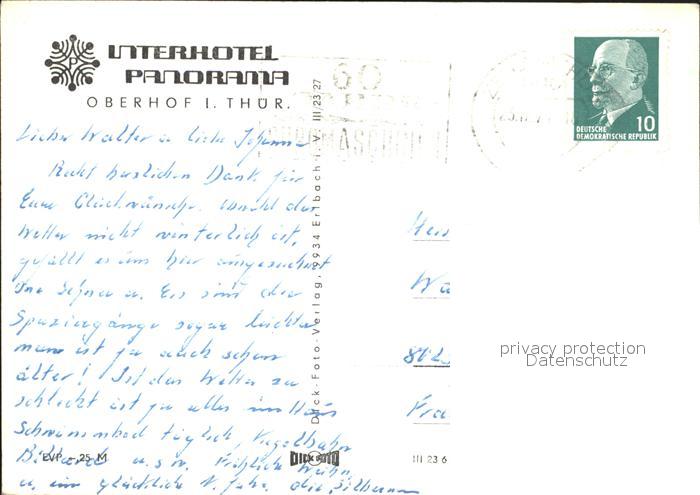 INTERHOTEL
PANORAMA
OBERHOF I. THÜR.
60
DEUTSCHE
DEMOKRATISCHE REPUBLIK 10
Lieber Walter u. liebe Johanna
Recht herzlichen Dank für
Eure Glückwünsche. Obwohl das
Wetter nicht winterlich ist,
gefällt es uns hier ausgezeichnet
Ohne Schnee u. Eis sind die
Spaziergänge sogar leichter
man ist ja auch schon
älter! Ist das Wetter zu
schlecht ist ja alles im Haus
Schwimmbad täglich, Kegelbahn
Billard u.s.w. Fröhliche Weihn.
u. ein glückliche N. Jahr. die Silbermann
Dick-Foto-Verlag, 9934 Erlbach i. V. III 23 27
Wa
802
privacy protection
Datenschutz
EVP -,25 M
DICK FOTO
III 23 6